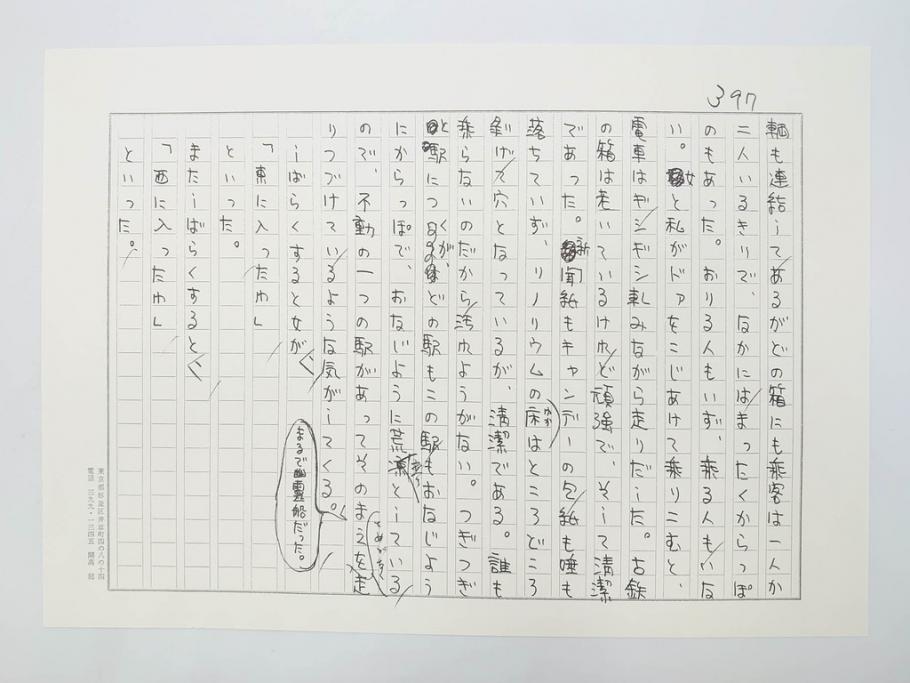 397
輌も連結してあるがどの箱にも乗客は一人か
二人いるきりで、なかにはまったくからっぽ
のもあった。おりる人もいず、乗る人もいな
い。女と私がドアをこじあけて乗りこむと、
電車はギシギシ軋みながら走りだした。古鉄
の箱は老いているけれど頑強で、そして清潔
であった。新聞紙もキャンデーの包紙も唾も
落ちていず、リノリウムの床はところどころ
剝げて穴となっているが、清潔である。誰も
乗らないのだから汚れようがない。つぎつぎ
と駅につくが、どの駅もこの駅もおなじよう
にからっぽで、おなじように荒涼としている
ので、不動の一つの駅があってそのまえを走
りつづけているような気がしてくる。
まるで幽霊船だった。
しばらくすると女が
「東に入ったわ」
といった。
またしばらくすると
「西に入ったわ」
といった。
東京都杉並区井草町四の八の十四
電話 三九九・一三四五 開高 健